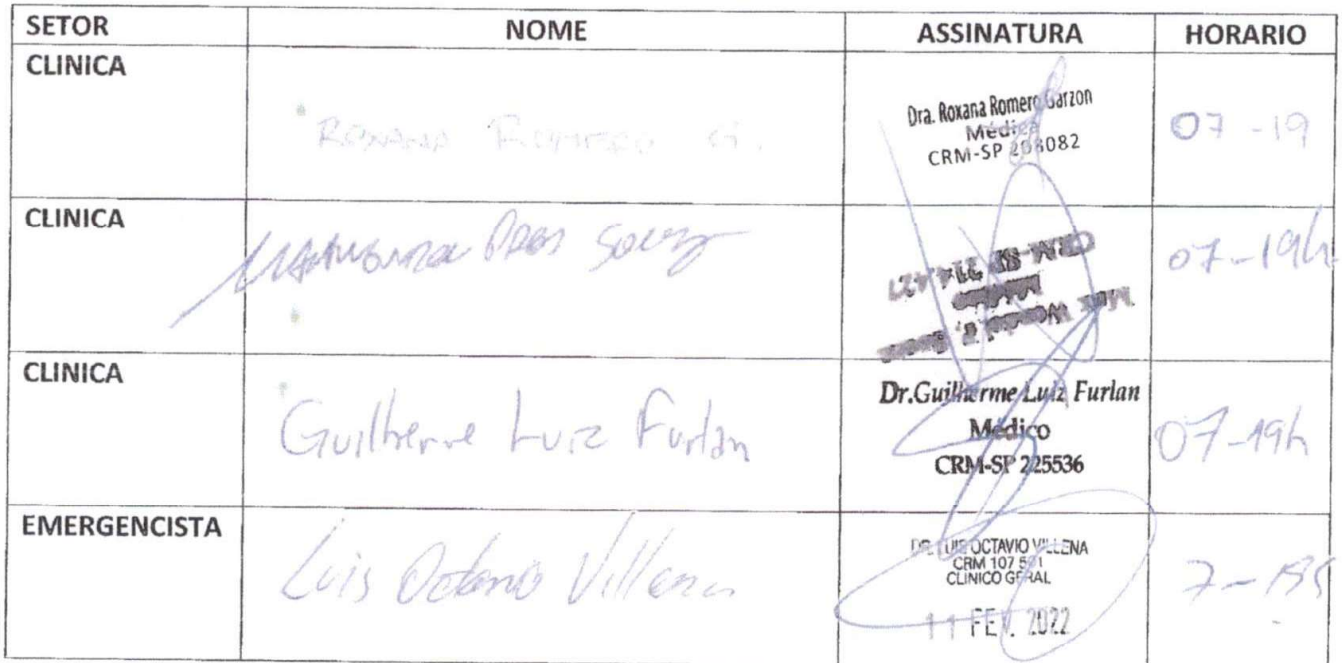 SETOR NOME ASSINATURA HORARIO
CLINICA
ROXANA ROMERO G.
Dra. Roxana Romero Garzon
Médica
CRM-SP 208082
07 - 19
CLINICA
CRM-SP 214.427
Médico
07-19h
CLINICA
Guilherme Luiz Furlan
Dr.Guilherme Luiz Furlan
Médico
CRM-SP 225536
07-19h
EMERGENCISTA
Luis Octavio Villena
DR. LUIS OCTAVIO VILLENA
CRM 107 591
CLINICO GERAL
11 FEV. 2022